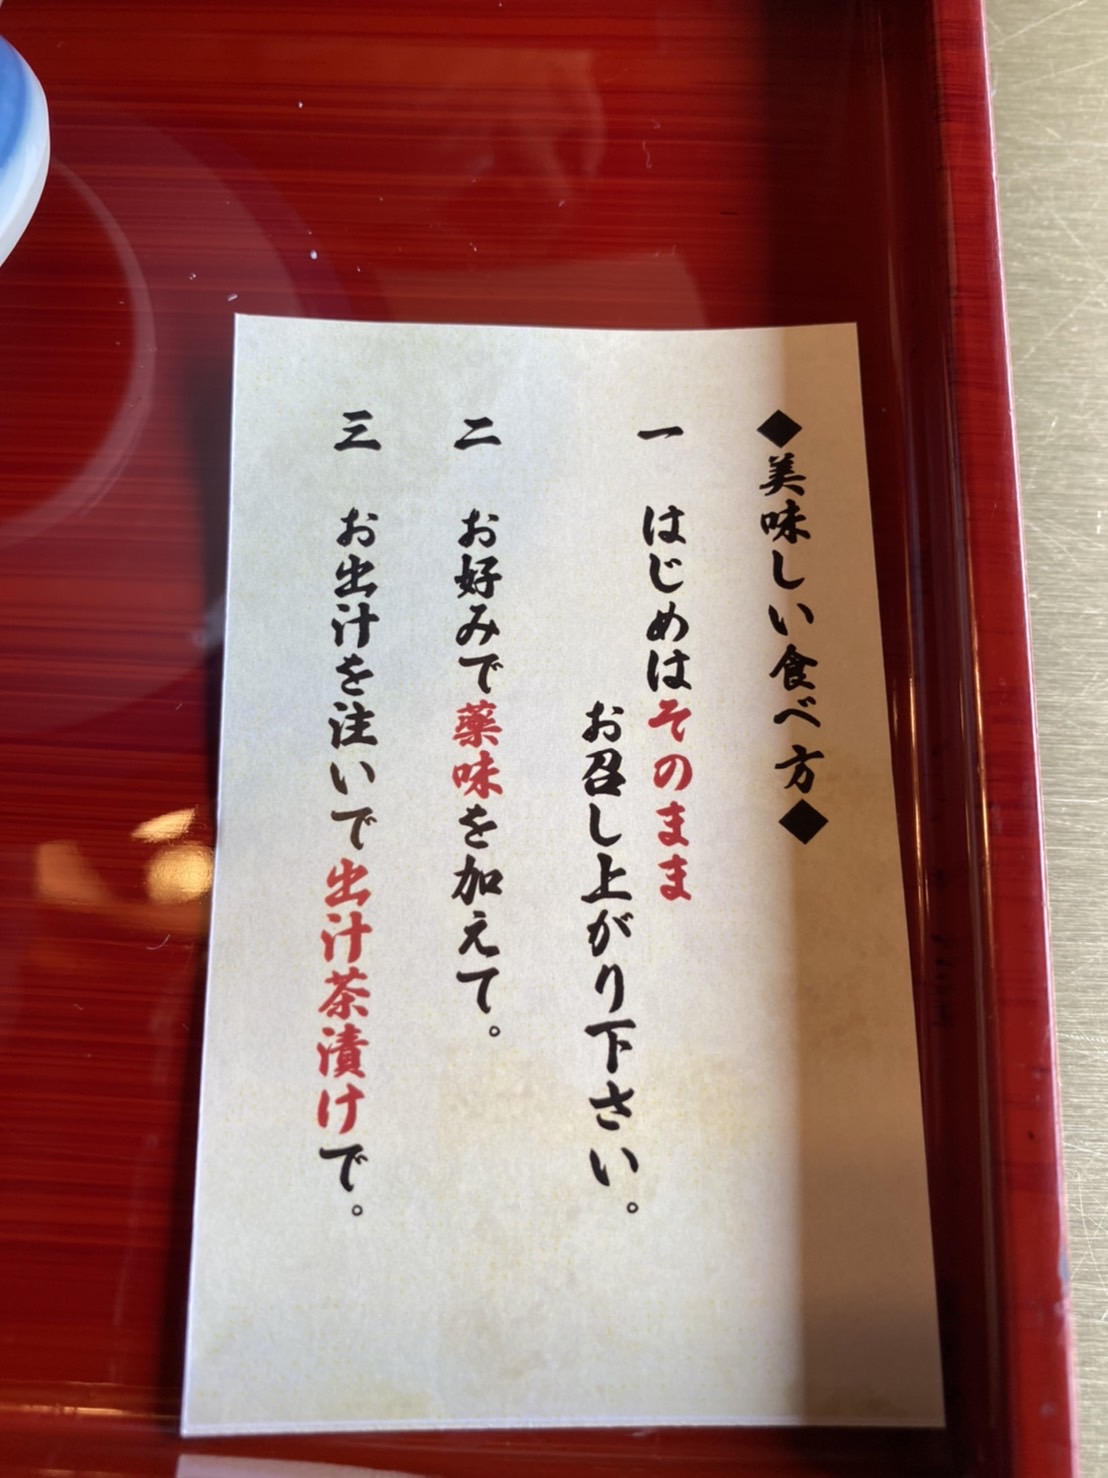 ◆美味しい食べ方◆
一　はじめはそのまま
お召し上がり下さい。
二　お好みで薬味を加えて。
三　お出汁を注いで出汁茶漬けで。